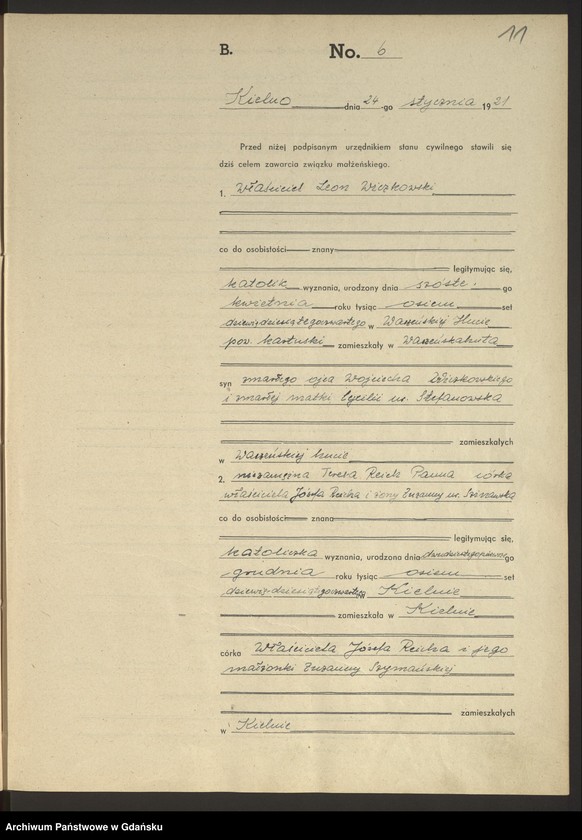 11
B. No. 6
Kielno dnia 24-go stycznia 1921
Przed niżej podpisanym urzędnikiem stanu cywilnego stawili się
dziś celem zawarcia związku małżeńskiego.
1. Właściciel Leon Wiczkowski
co do osobistości znany
legitymując się,
katolik wyznania, urodzony dnia szóste. go
kwietnia roku tysiąc osiem set
dziewiędziesiątegoczwartego w Warzeńskiej Hucie
pow. kartuski zamieszkały w Warzeńskahuta
syn zmarłego ojca Wojciecha Wiczkowskiego
i zmarłej matki Cecylii ur. Stefanowska
zamieszkałych
w Warzeńskiej hucie
2. niezamężna Teresa Reicka Panna córka
właściciela Józefa i żony Zuzanny ur.
co do osobistości znana
legitymując się,
katoliczka wyznania, urodzona dnia go
grudnia roku tysiąc osiem set
w Kielnie
zamieszkała w Kielnie
córka Właściciela Józefa i jego
małżonki Zuzanny Szymańskiej
zamieszkałych
w Kielnie
Archiwum Państwowe w Gdańsku